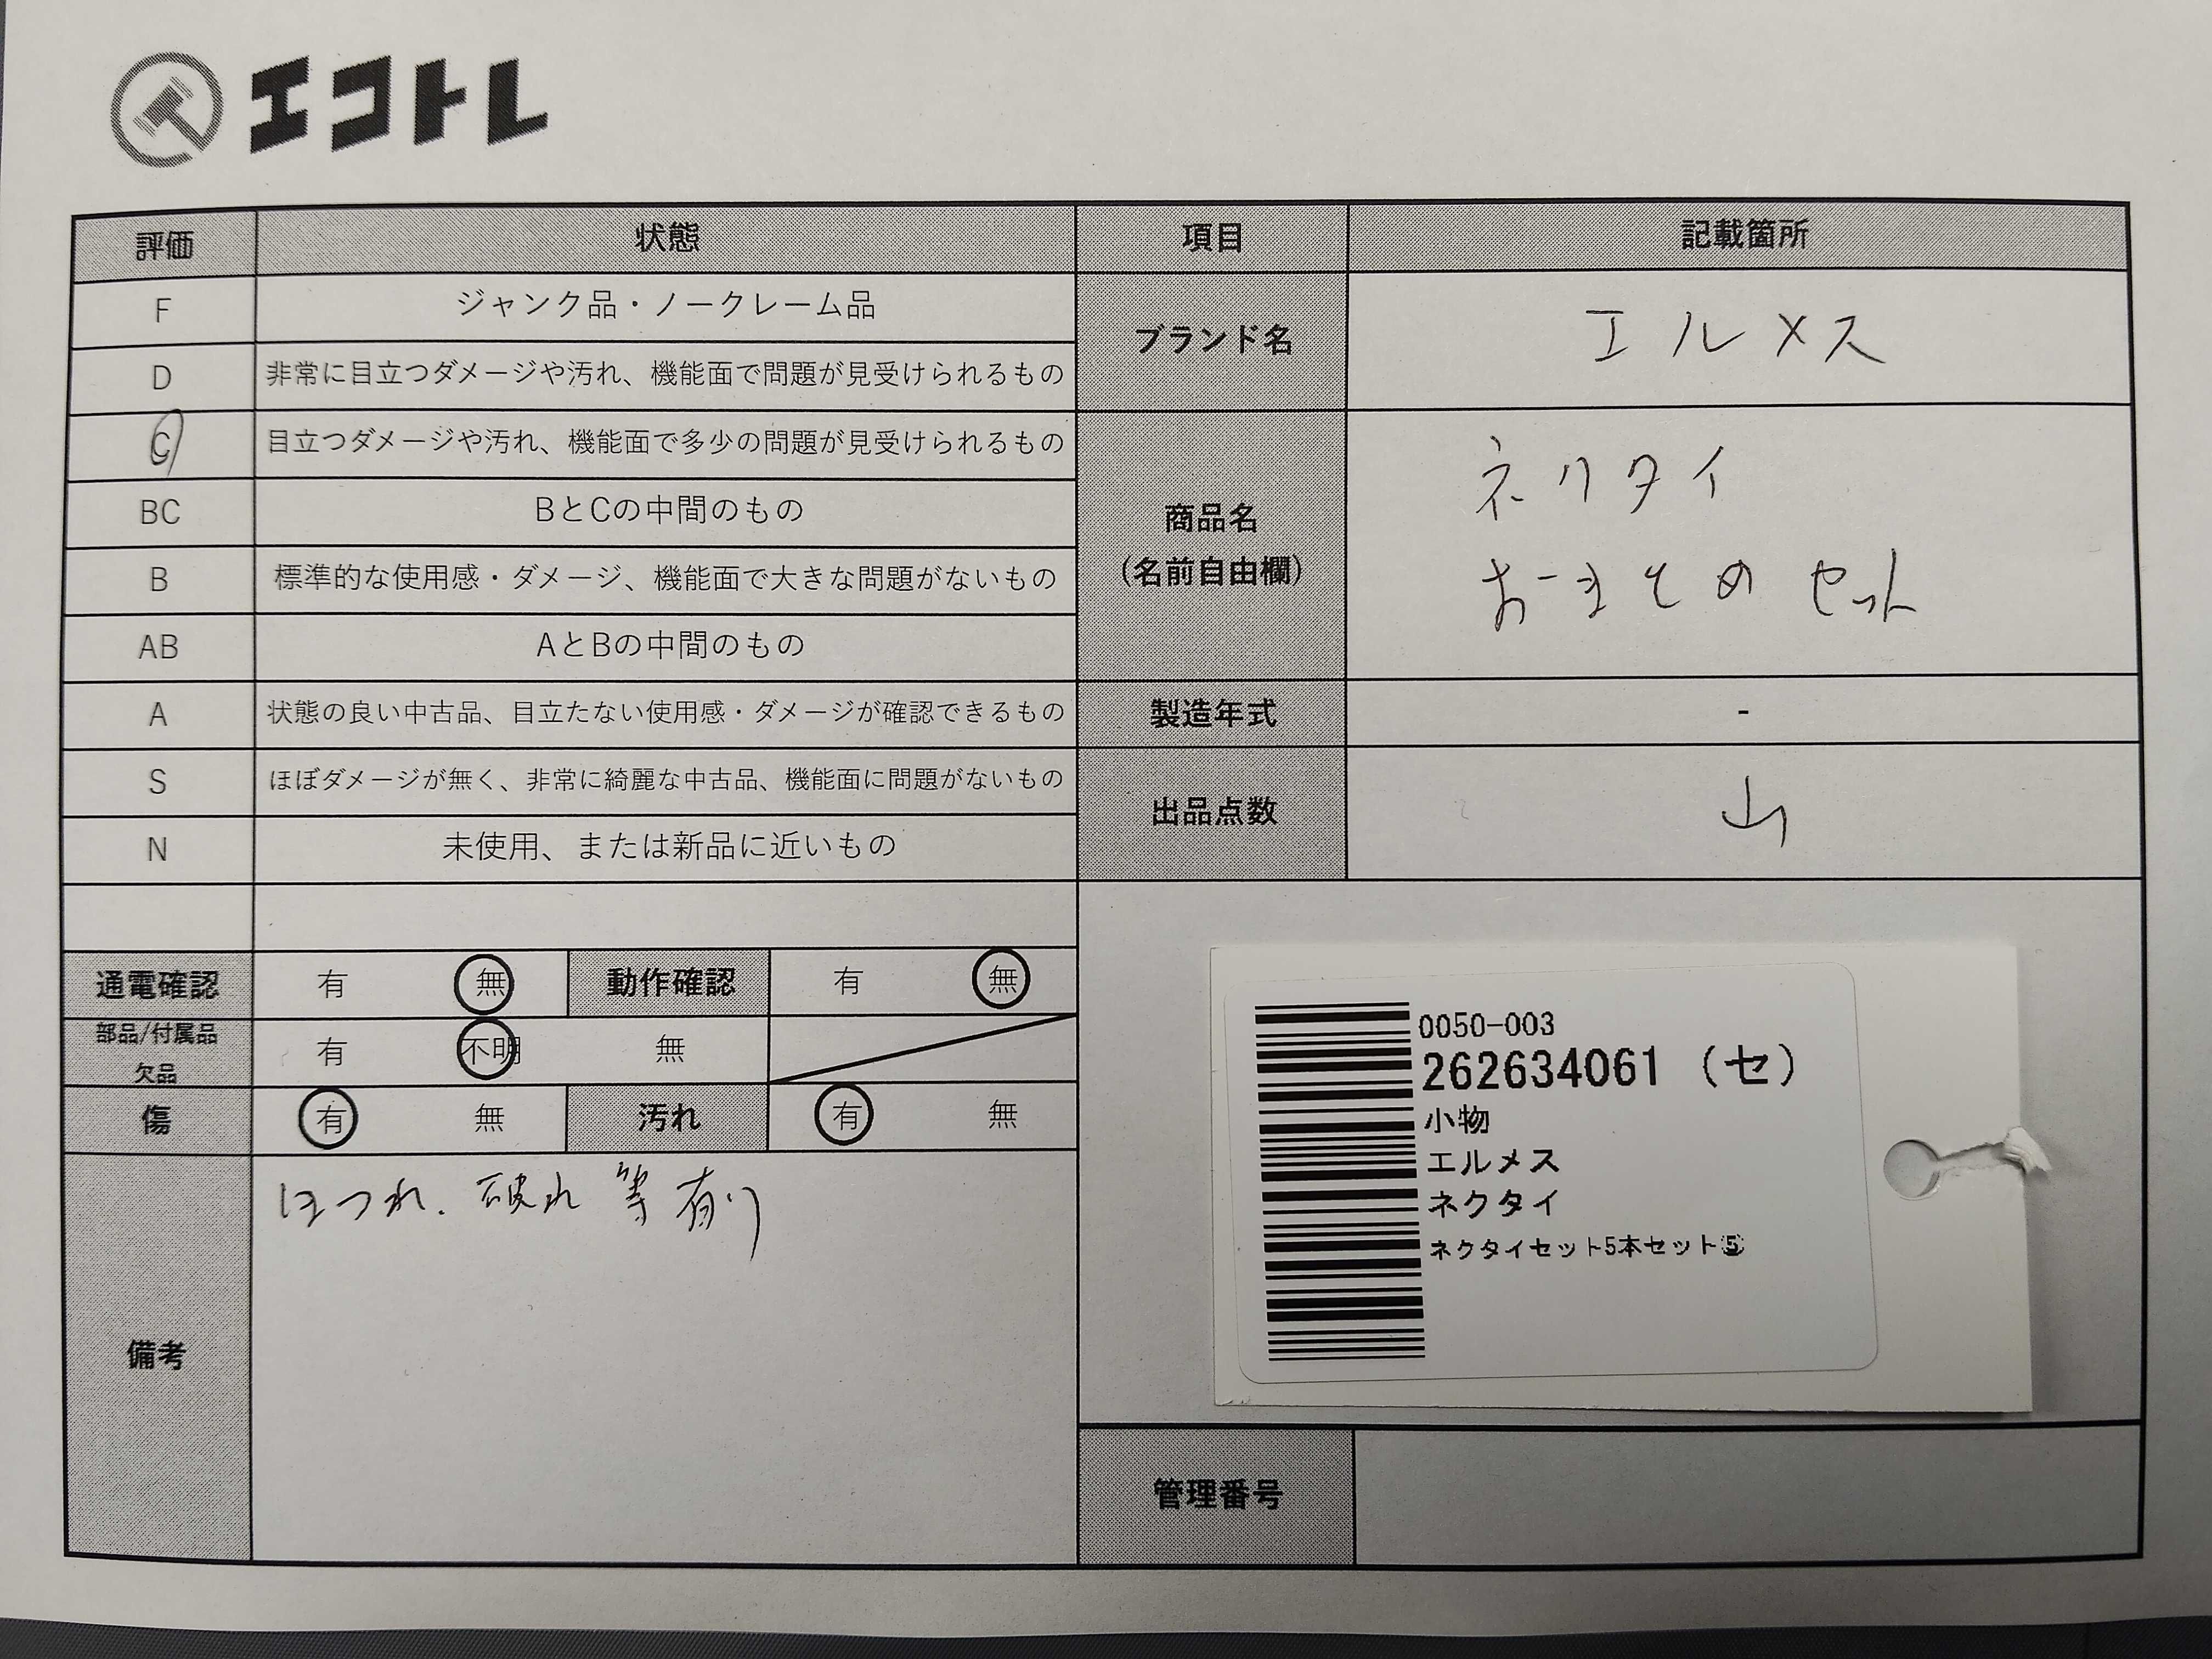 エコトレ
評価 状態 項目 記載箇所
F ジャンク品・ノークレーム品
D 非常に目立つダメージや汚れ、機能面で問題が見受けられるもの
C 目立つダメージや汚れ、機能面で多少の問題が見受けられるもの
BC BとCの中間のもの
B 標準的な使用感・ダメージ、機能面で大きな問題がないもの
AB AとBの中間のもの
A 状態の良い中古品、目立たない使用感・ダメージが確認できるもの
S ほぼダメージが無く、非常に綺麗な中古品、機能面に問題がないもの
N 未使用、または新品に近いもの
ブランド名 エルメス
商品名
(名前自由欄)
ネクタイ
おまとめセット
製造年式 -
出品点数 山
通電確認 有 無 動作確認 有 無
部品/付属品
欠品
有 不明 無
傷 有 無 汚れ 有 無
備考 ほつれ、破れ等有り
0050-003
262634061 (セ)
小物
エルメス
ネクタイ
ネクタイセット5本セット⑤
管理番号